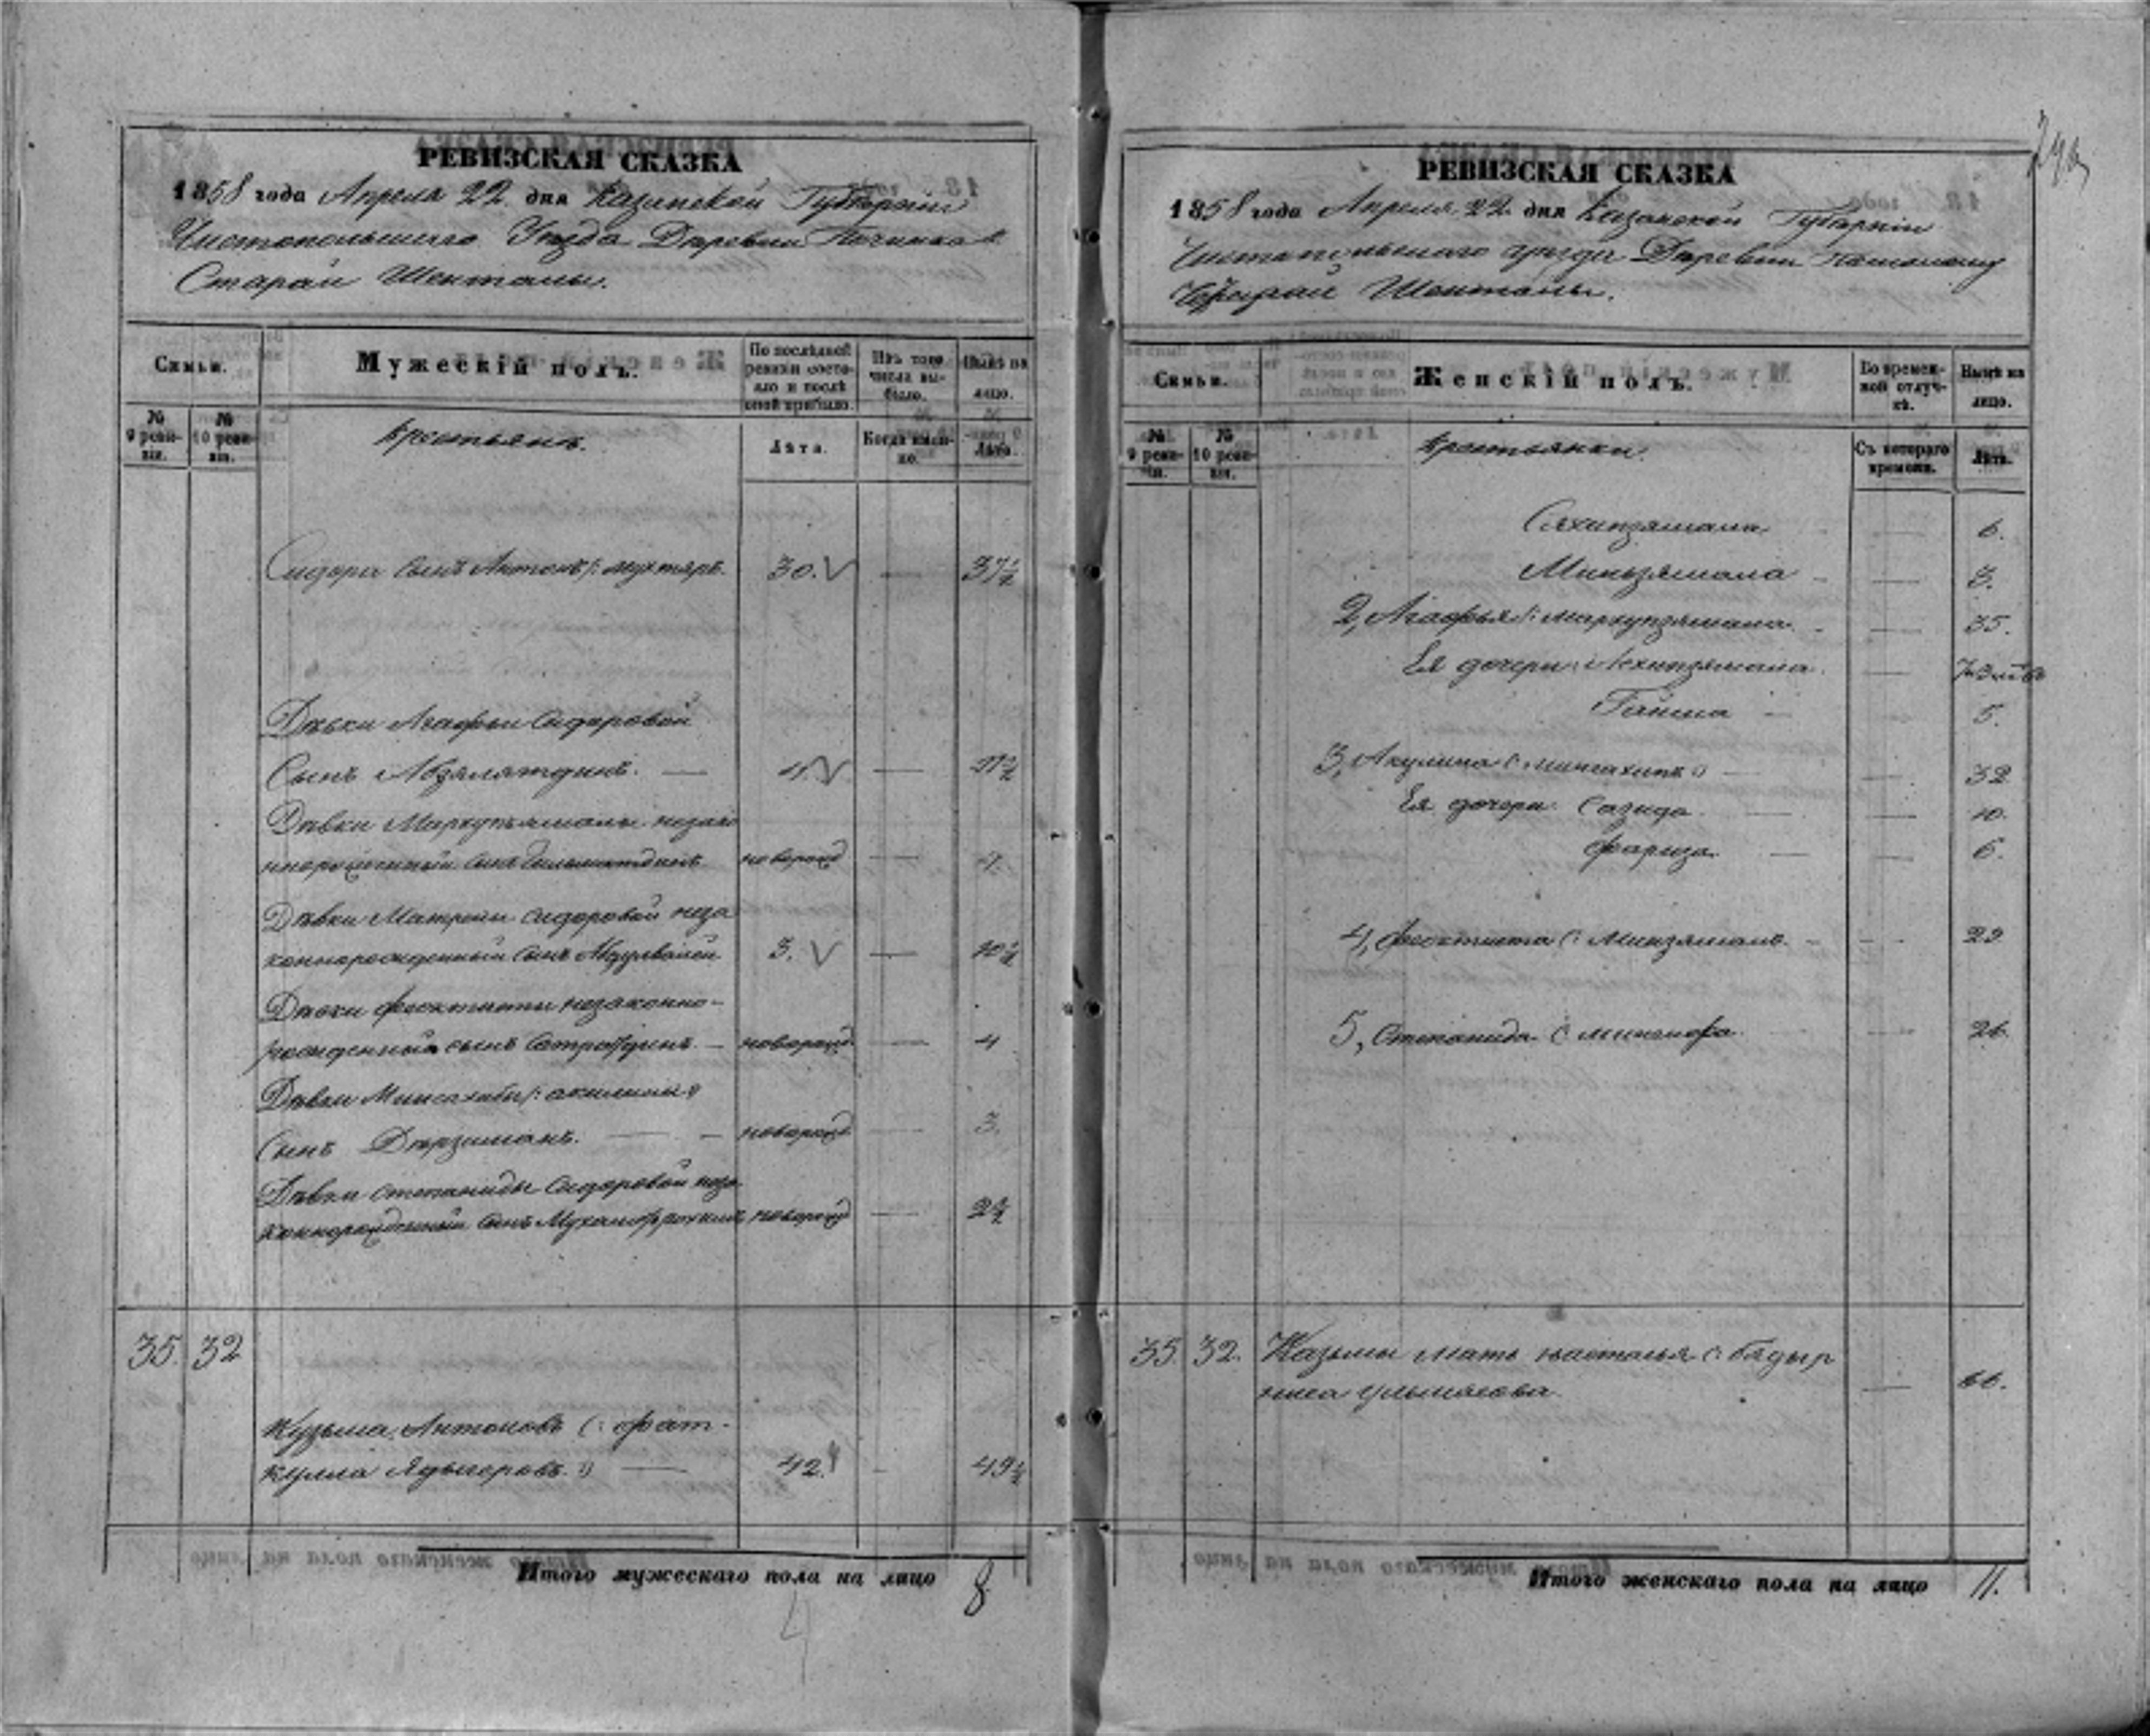 РЕВИЗСКАЯ СКАЗКА
1858 года Апреля 22 дня Казанской Губерніи
Чистопольского Уезда Деревни Починка
Старой Шенталы.
Семьи.
Мужескій полъ.
По послѣдней ревизіи состояло и послѣ оной прибыло.
Изъ того числа выбыло.
Нынѣ на лицо.
№ 9 ревизіи.
№ 10 ревизіи.
Крестьянъ.
Лѣта.
Когда именно.
Лѣта.
Сидора сынъ Антонъ (: Мухтяръ. 30. — 37½
Дѣвки Агафьи Сидоровой
Сынъ Абзялятдинъ. — 4. — 11½
Дѣвки Мархупзямалы незако
ннорожденный сынъ новорожд — 7.
Дѣвки Матрены Сидоровой неза
коннорожденный сынъ Абдулвалей 3. — 10½
Дѣвки Феоктисты незаконно-
рожденный сынъ Сатратдинъ. — новорожд. — 4
Дѣвки Минсахибы (: Акилины :)
Сынъ Дярзиманъ. — новорожд. — 3.
Дѣвки Степаниды Сидоровой неза
коннорожденный сынъ новорожд — 2½
35. 32
Кузьма Антоновъ (: Фат-
кулла Ядыгеровъ :) — 42. — 49½
Итого мужескаго пола на лицо 8
4
РЕВИЗСКАЯ СКАЗКА
1858 года Апреля 22 дня Казанской Губерніи
Чистопольского уезда Деревни
Старой Шенталы.
Семьи.
Женскій полъ.
Во временной отлучкѣ.
Нынѣ на лицо.
№ 9 ревизіи.
№ 10 ревизіи.
Крестьянки.
Съ котораго времени.
Лѣта.
Сяхипзямала — 6.
Миньзямала — 3.
2, Агафья (: Мархупзямала. — 35.
Ея дочери: Ляхипзямала. —
Гайша — 5.
3, Акулина (: Минсахипя :) — 32
Ея дочери: Сагида. — 10.
Фариза. — 6.
4, Феоктиста (: Минзямалъ. — 29
5, Степанида (: — 26.
35. 32. Казьмы мать Настасья (: Бядыр
ниса — 66.
Итого женскаго пола на лицо 11.